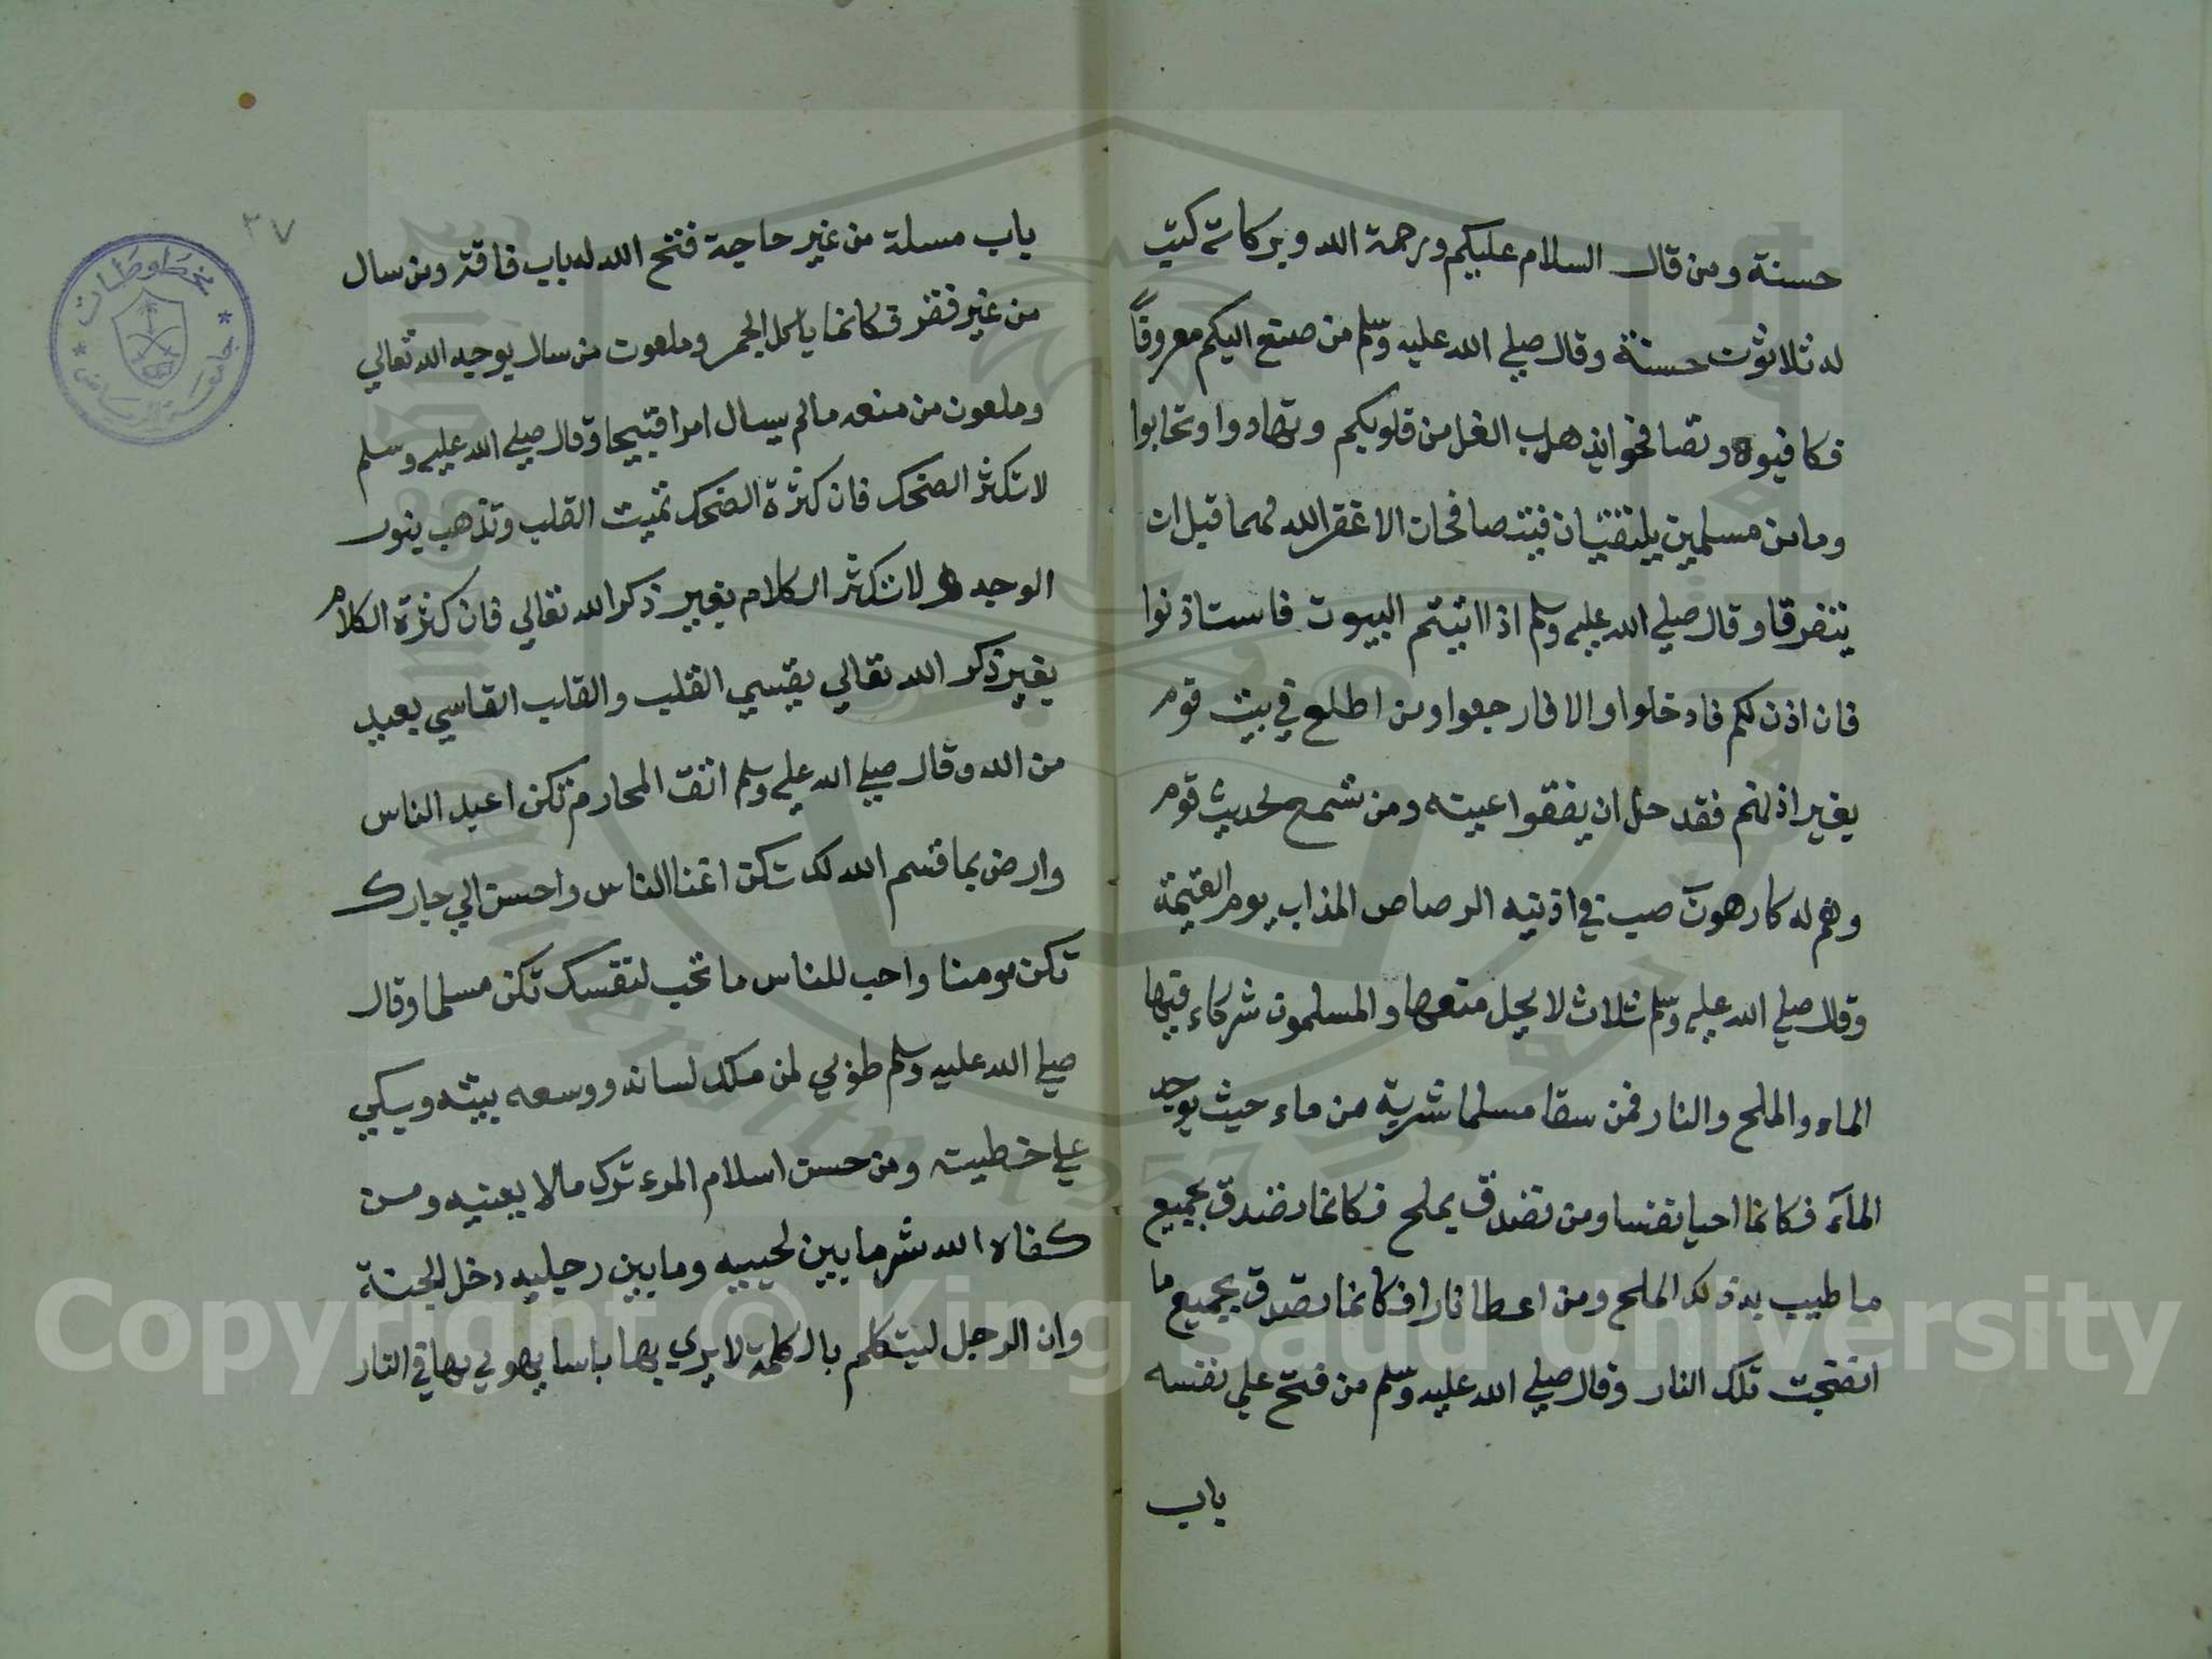 حسنة ومن قال السلام عليكم ورحمة الله وبركاته كتبت
له ثلاثون حسنة وقال صلي الله عليه وسلم من صنع اليكم معروفاً
فكافيوه وتصافحوا يذهب الغل من قلوبكم وتهادوا وتحابوا
وما من مسلمين يلتقيان فيتصافحان الا غفر الله لهما قبل ان
يتفرقا وقال صلي الله عليه وسلم اذا اتيتم البيوت فاستاذنوا
فان اذن لكم فادخلوا والا فارجعوا ومن اطلع في بيت قوم
بغير اذنهم فقد حل ان يفقوا عينه ومن تسمع لحديث قوم
وهم له كارهون صب في اذنيه الرصاص المذاب يوم القيمة
وقال صلي الله عليه وسلم ثلاث لا يحل منعها والمسلمون شركاء فيها
الماء والملح والنار فمن سقا مسلما شربة من ماء حيث يوجد
الماء فكانما احيا نفسا ومن تصدق بملح فكانما تصدق بجميع
ما طيب بذلك الملح ومن اعطا نارا فكانما تصدق بجميع ما
انضجت تلك النار وقال صلي الله عليه وسلم من فتح علي نفسه
باب
٣٧
باب مسلة من غير حاجة فتح الله له باب فاقة ومن سال
من غير فقر فكانما ياكل الجمر وملعون من سال بوجه الله تعالي
وملعون من منعه مالم يسال امرا قبيحا وقال صلي الله عليه وسلم
لا تكثر الضحك فان كثرة الضحك تميت القلب وتذهب بنور
الوجه ولا تكثر الكلام بغير ذكر الله تعالي فان كثرة الكلام
بغير ذكر الله تعالي يقسي القلب والقلب القاسي بعيد
من الله وقال صلي الله عليه وسلم اتق المحارم تكن اعبد الناس
وارض بما قسم الله لك تكن اغنا الناس واحسن الي جارك
تكن مومنا واحب للناس ما تحب لنفسك تكن مسلما وقال
صلي الله عليه وسلم طوبي لمن ملك لسانه ووسعه بيته وبكي
علي خطيته ومن حسن اسلام المرء ترك مالا يعنيه ومن
كفاه الله شر ما بين لحييه وما بين رجليه دخل الجنة
وان الرجل ليتكلم بالكلمة لا يري بها باسا يهوي بها في النار
مخطوطات
جامعة الرياض
Copyright © King Saud University